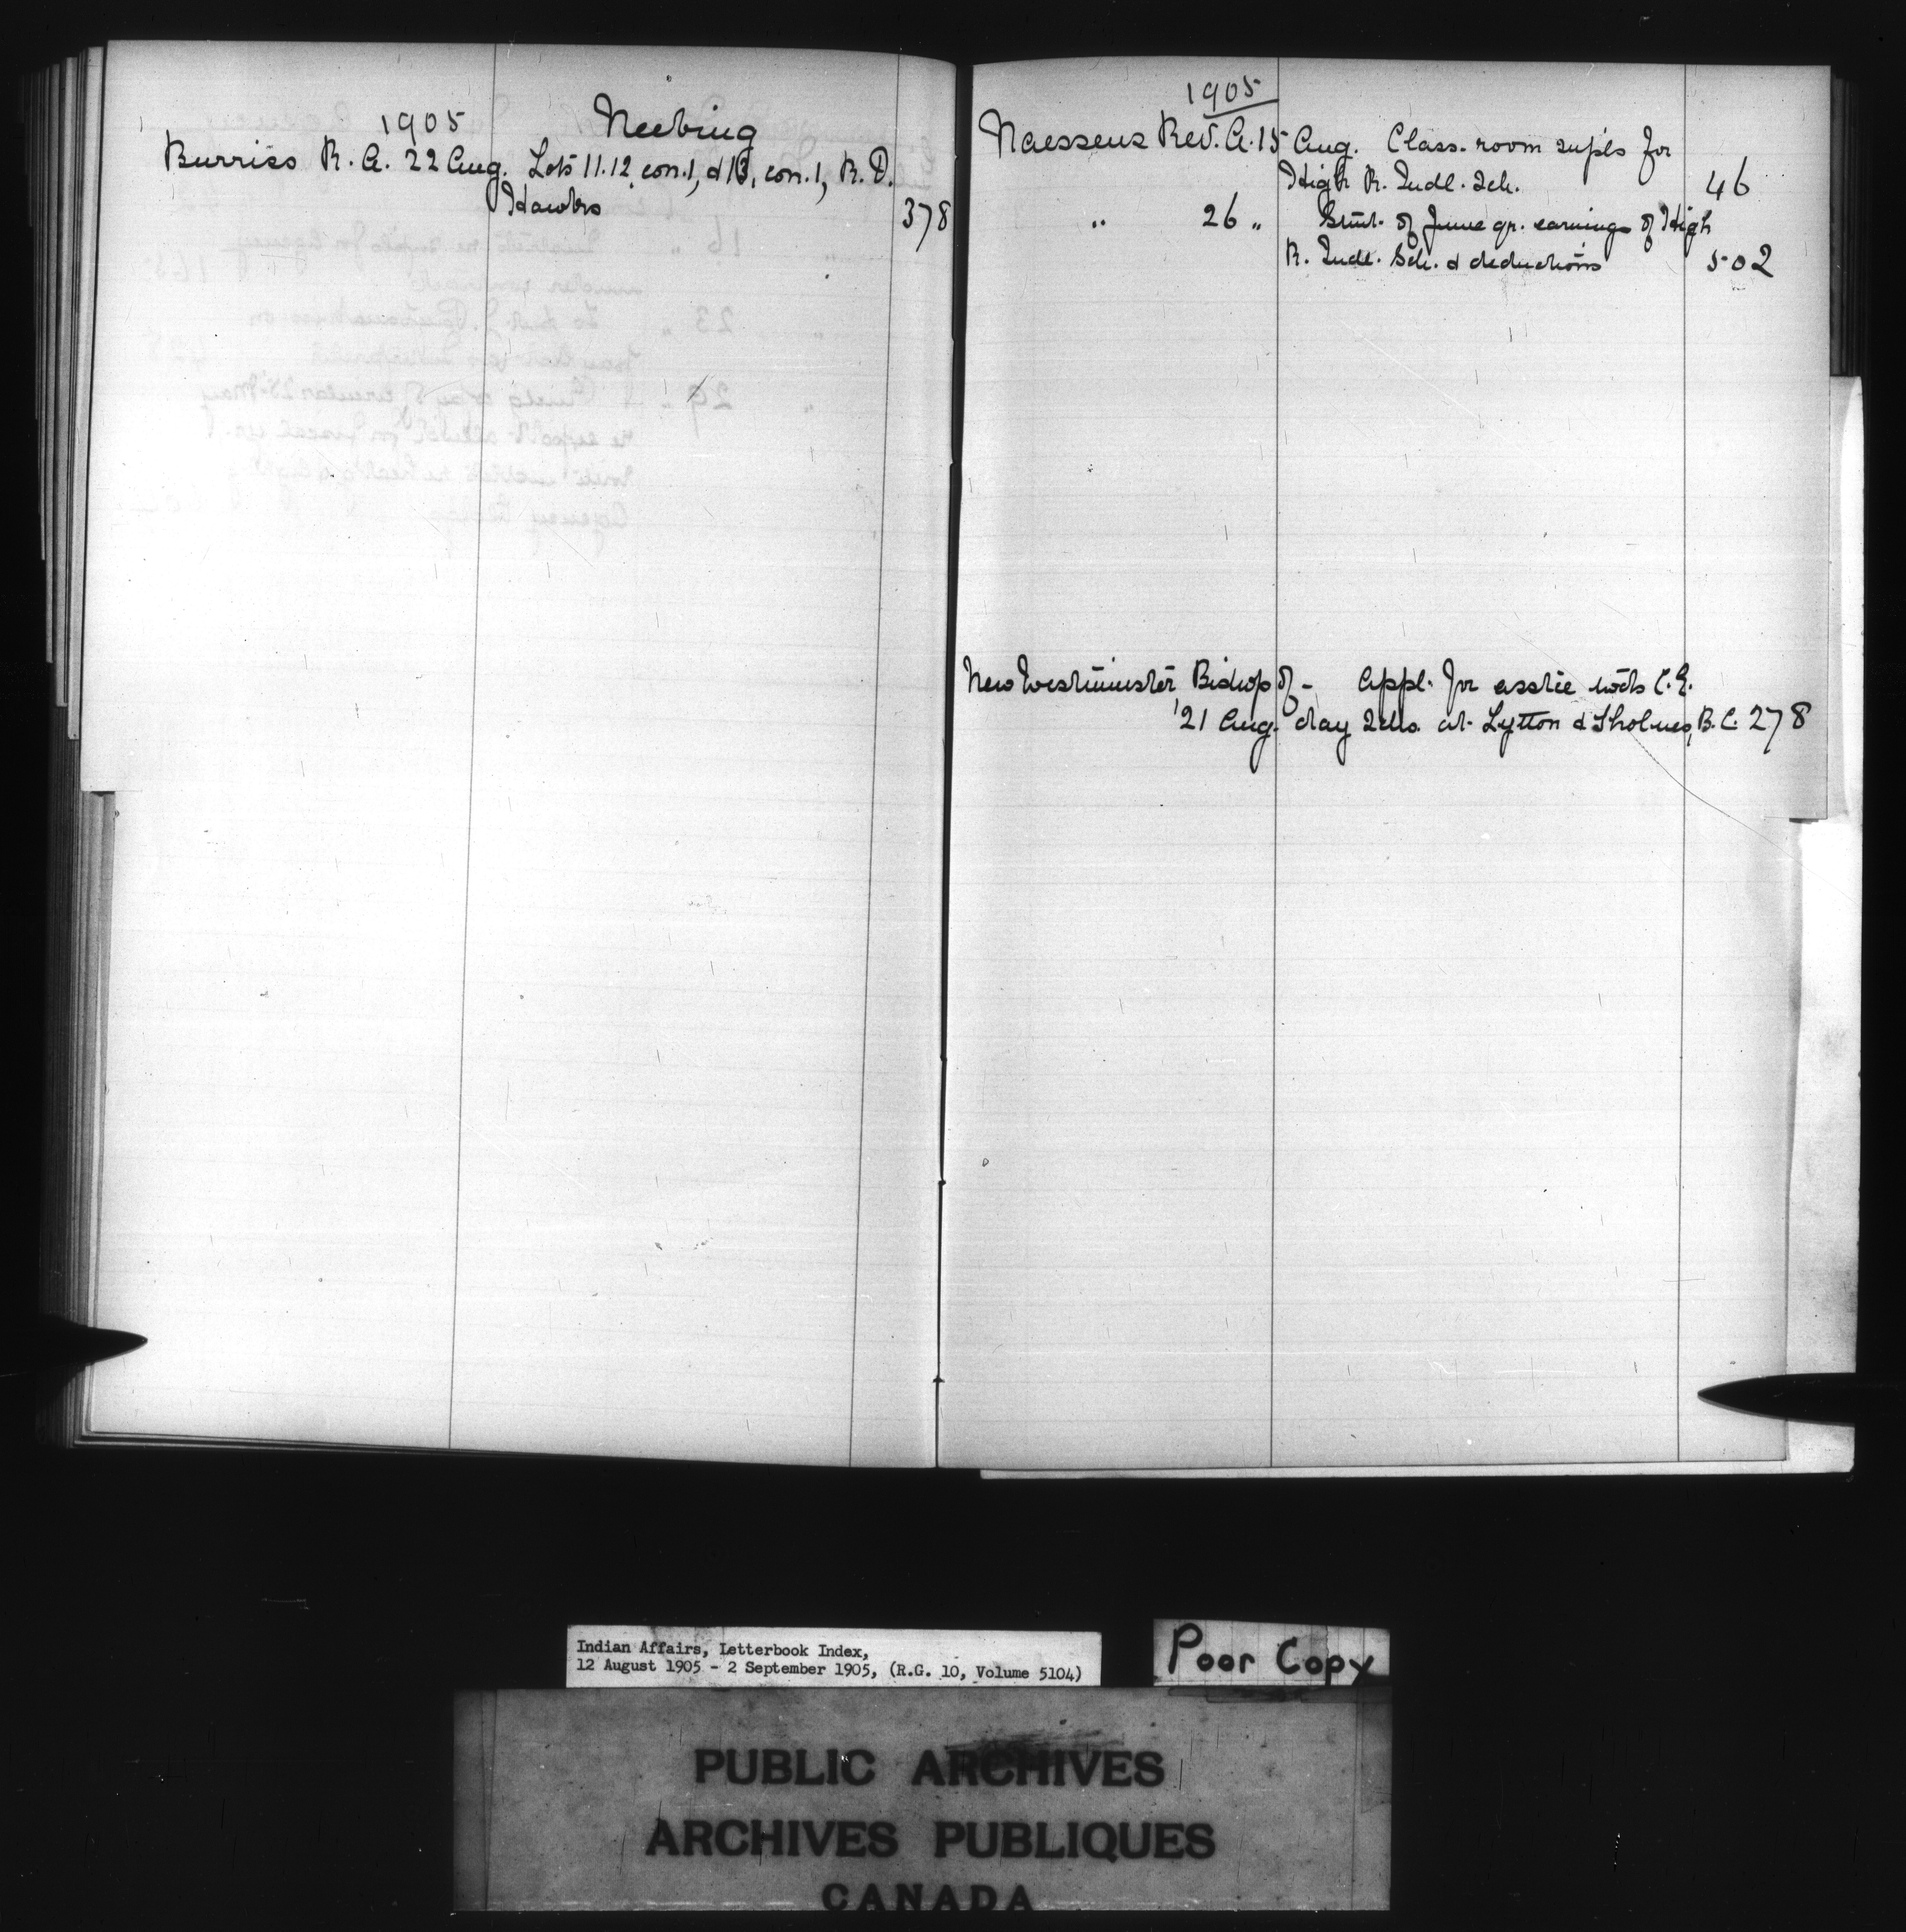 1905 Neebing
Burriss R. A. 22 Aug. Lots 11.12. con.1, & 13, con.1, R. D.
Hawks 378
1905
Naessens Rev. A. 15 Aug. Class-room supls for
High R. Indl. Sch. 46
" 26 " Stmt. of June qr. earnings of High
R. Indl. Sch. & deductions 502
New Westminster Bishop of - Appl. for asstce C. E.
21 Aug. day Schs. at Lytton & Sholmes, B.C. 278
Indian Affairs, Letterbook Index,
12 August 1905 - 2 September 1905, (R.G. 10, Volume 5104)
Poor Copy
PUBLIC ARCHIVES
ARCHIVES PUBLIQUES
CANADA